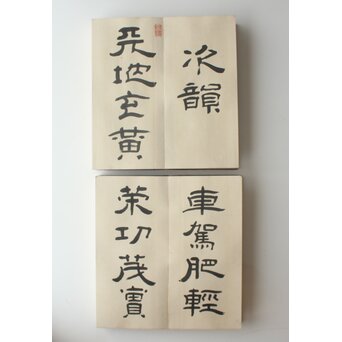 次韻
天地玄黃
車駕肥輕
策功茂實